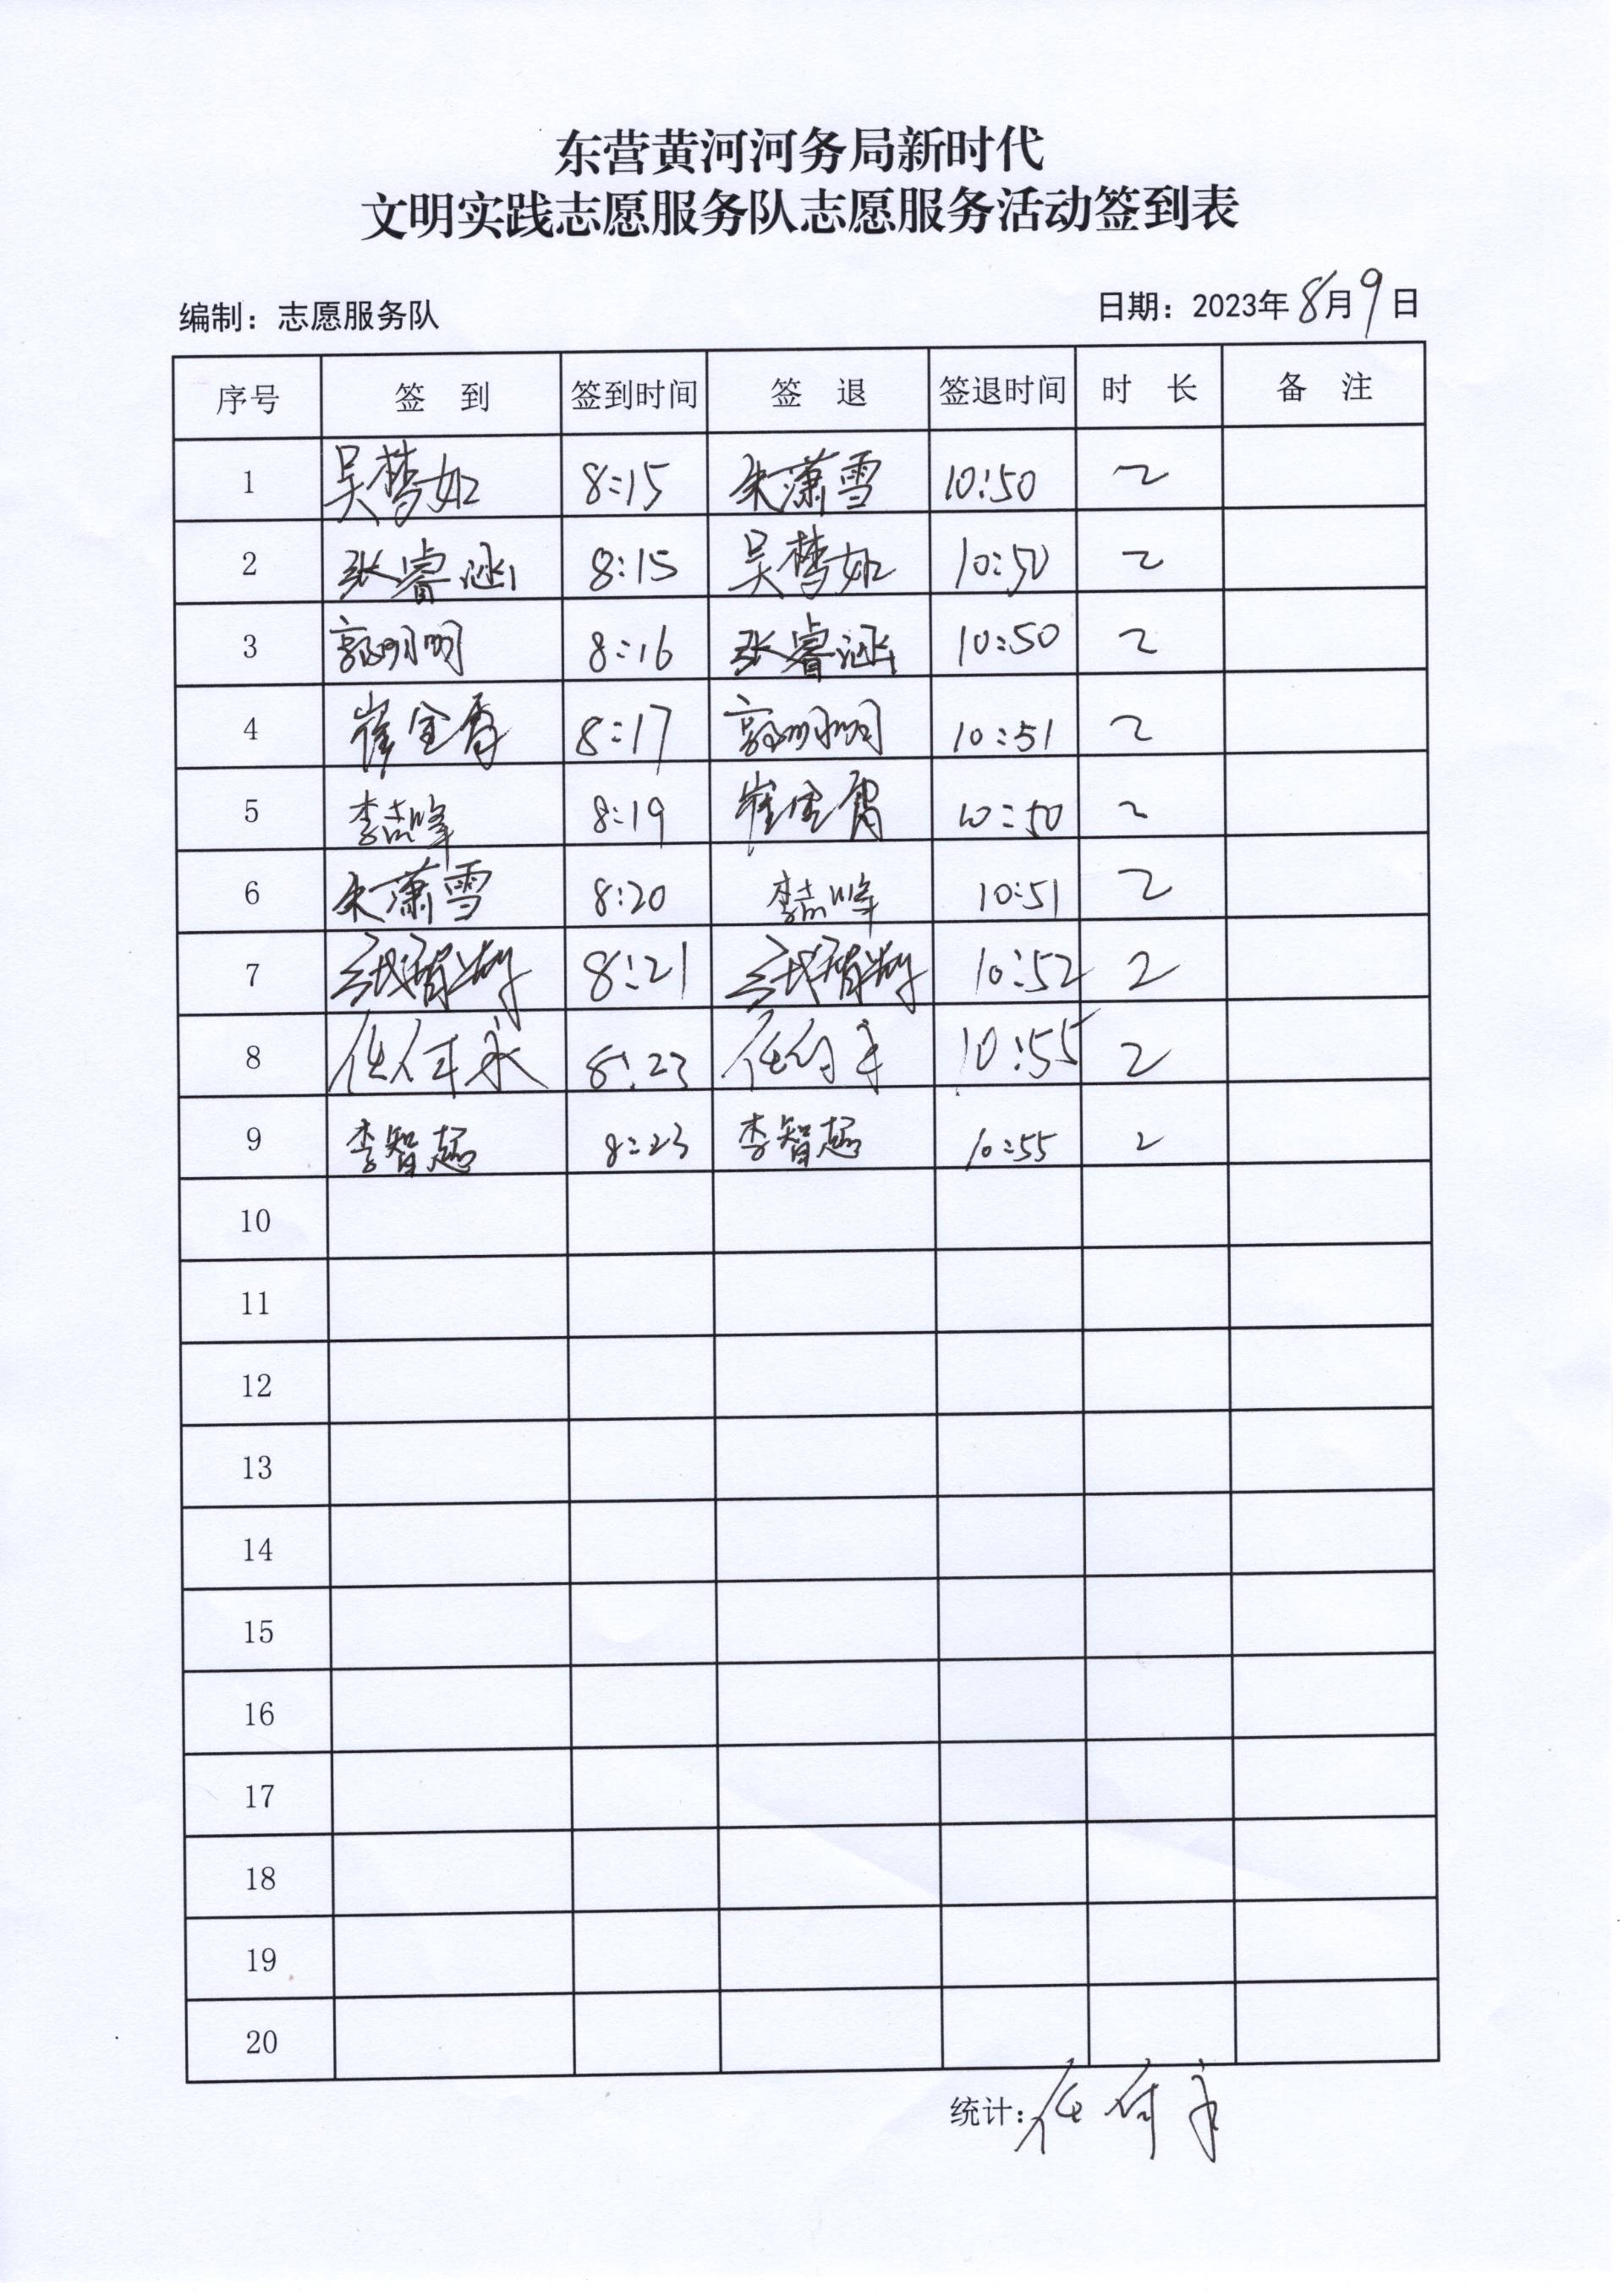 东营黄河河务局新时代
文明实践志愿服务队志愿服务活动签到表
编制：志愿服务队 日期：2023年8月9日
序号 签 到 签到时间 签 退 签退时间 时 长 备 注
1 吴梦如 8:15 朱潇雪 10:50 2
2 张睿涵 8:15 吴梦如 10:50 2
3 郭明明 8:16 张睿涵 10:50 2
4 崔 8:17 郭明明 10:51 2
5 李喆峰 8:19 崔 10:50 2
6 朱潇雪 8:20 李喆峰 10:51 2
7 8:21 10:52 2
8 任付永 8:23 任付永 10:55 2
9 李智超 8:23 李智超 10:55 2
10
11
12
13
14
15
16
17
18
19
20
统计：任付永